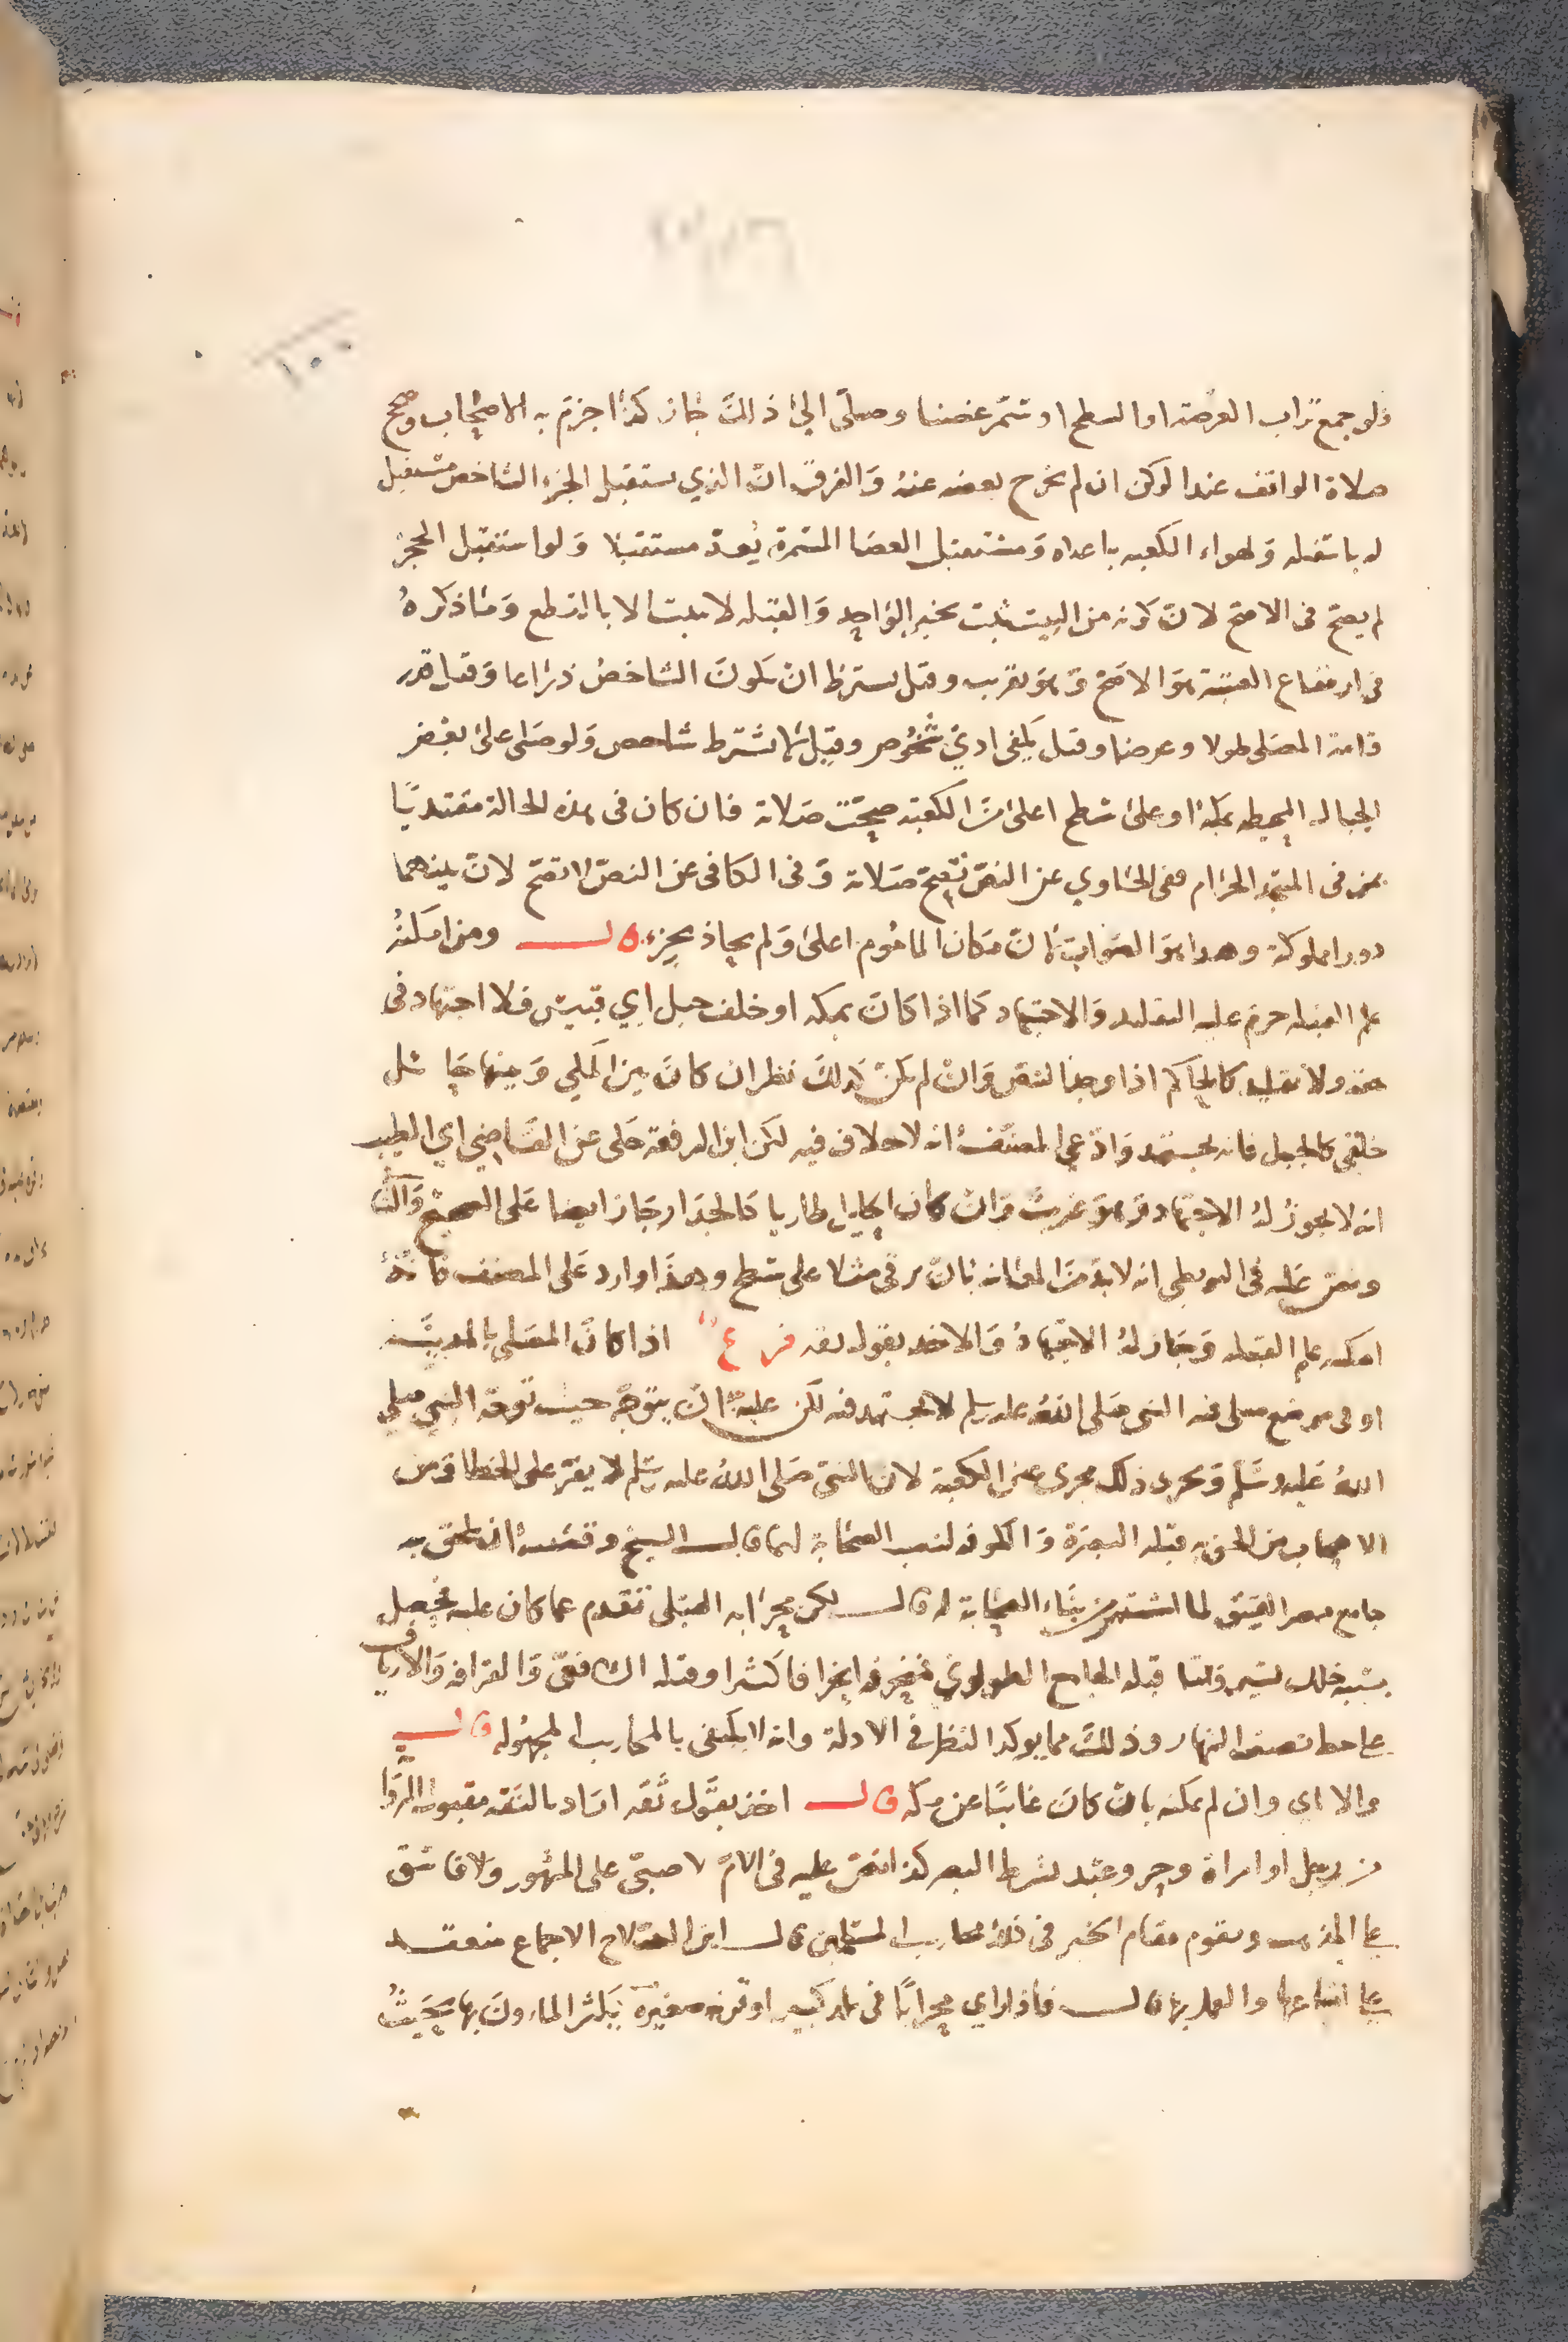 ١٠٠
فلو جمع تراب العرصة او السطح او سمر عصا وصلى الي ذلك جاز كذا جزم به الاصحاب وصح
صلاة الواقف عند الركن ان لم يخرج بعضه عنه والفرق ان الذي يستقبل الجزء الشاخص مستقبل
له باسفله ولهواء الكعبه باعلاه ومستقبل العصا المسمرة يعد مستقبلا ولو استقبل الحجر
لم يصح في الاصح لان كونه من البيت ثبت بخبر الواحد والقبله لا تثبت الا بالقطع وما ذكره
في ارتفاع العتبة هو الاصح وهو تقريب وقيل يشترط ان يكون الشاخص ذراعا وقيل قدر
قامة المصلي طولا وعرضا وقيل يكفي ادني شخوص وقيل لا يشترط شاخص ولو صلى على بعض
الجبال المحيطه بمكة او على سطح اعلى من الكعبة صحت صلاته فان كان في هذه الحالة مقتديا
بمن في المسجد الحرام ففي الحاوي عن النص تصح صلاته وفي الكافي عن النص لا تصح لان بينهما
دورا مملوكة وهذا هو الصواب لان مكان الماموم اعلى ولم يحاذ بجزء قال ومن امكنه
علم القبله حرم عليه التقليد والاجتهاد كما اذا كان بمكه او خلف جبل ابي قبيس فلا اجتهاد في
حقه ولا تقليد كالحاكم اذا وجد النص وان لم يكن كذلك نظر ان كان بين المكي وبينها حائل
خلقي كالجبل فانه يجتهد وادعى المصنف انه لا خلاف فيه لكن ابن الرفعة حكى عن القاضي ابي الطيب
انه لا يجوز له الاجتهاد وهو غريب وان كان الحايل طاريا كالجدار جاز ايضا على الصحيح والثاني
ونص عليه في البويطي انه لا بد من المعاينه بان يرقى مثلا على سطح وهذا وارد على المصنف فانه
امكنه علم القبله وجاز له الاجتهاد والاخذ بقول ثقه فرع اذا كان المصلي بالمدينة
او في موضع صلى فيه النبي صلى الله عليه وسلم لا يجتهد فيه لكن عليه ان يتوجه حيث توجه النبي صلي
الله عليه وسلم ويجري ذلك مجرى عين الكعبة لان النبي صلى الله عليه وسلم لا يقر على الخطا ومن
الاصحاب من الحق به قبله البصرة والكوفه لنصب الصحابة لهما قال الشيخ وقضيته ان يلحق به
جامع مصر العتيق لما اشتهر من بناء الصحابة له قال لكن محرابه القبلي تقدم عما كان عليه فحصل
بسببه خلل يسير قلت قبله الجامع الطولوني منحرفه انحرافا كثيرا وقبله الشافعي والقرافه والارياف
على خط نصف النهار وذلك مما يوكد النظر في الادلة وانه لا يكتفى بالمحاريب المجهوله قال
والا اي وان لم يمكنه بان كان غائبا عن مكه قال اخذ بقول ثقه اراد بالثقه مقبول الروا
من رجل او امراة وحر وعبد بشرط البصر كذا نص عليه في الام لا صبي على المشهور ولا فاسق
على المذهب ويقوم مقام الخبر في ذلك محاريب المسلمين قال ابن الصلاح الاجماع منعقد
على اتباعها والعمل بها قال فاذا راي محرابا في بلد كبير او قرية صغيرة يكثر المارون بها بحيث